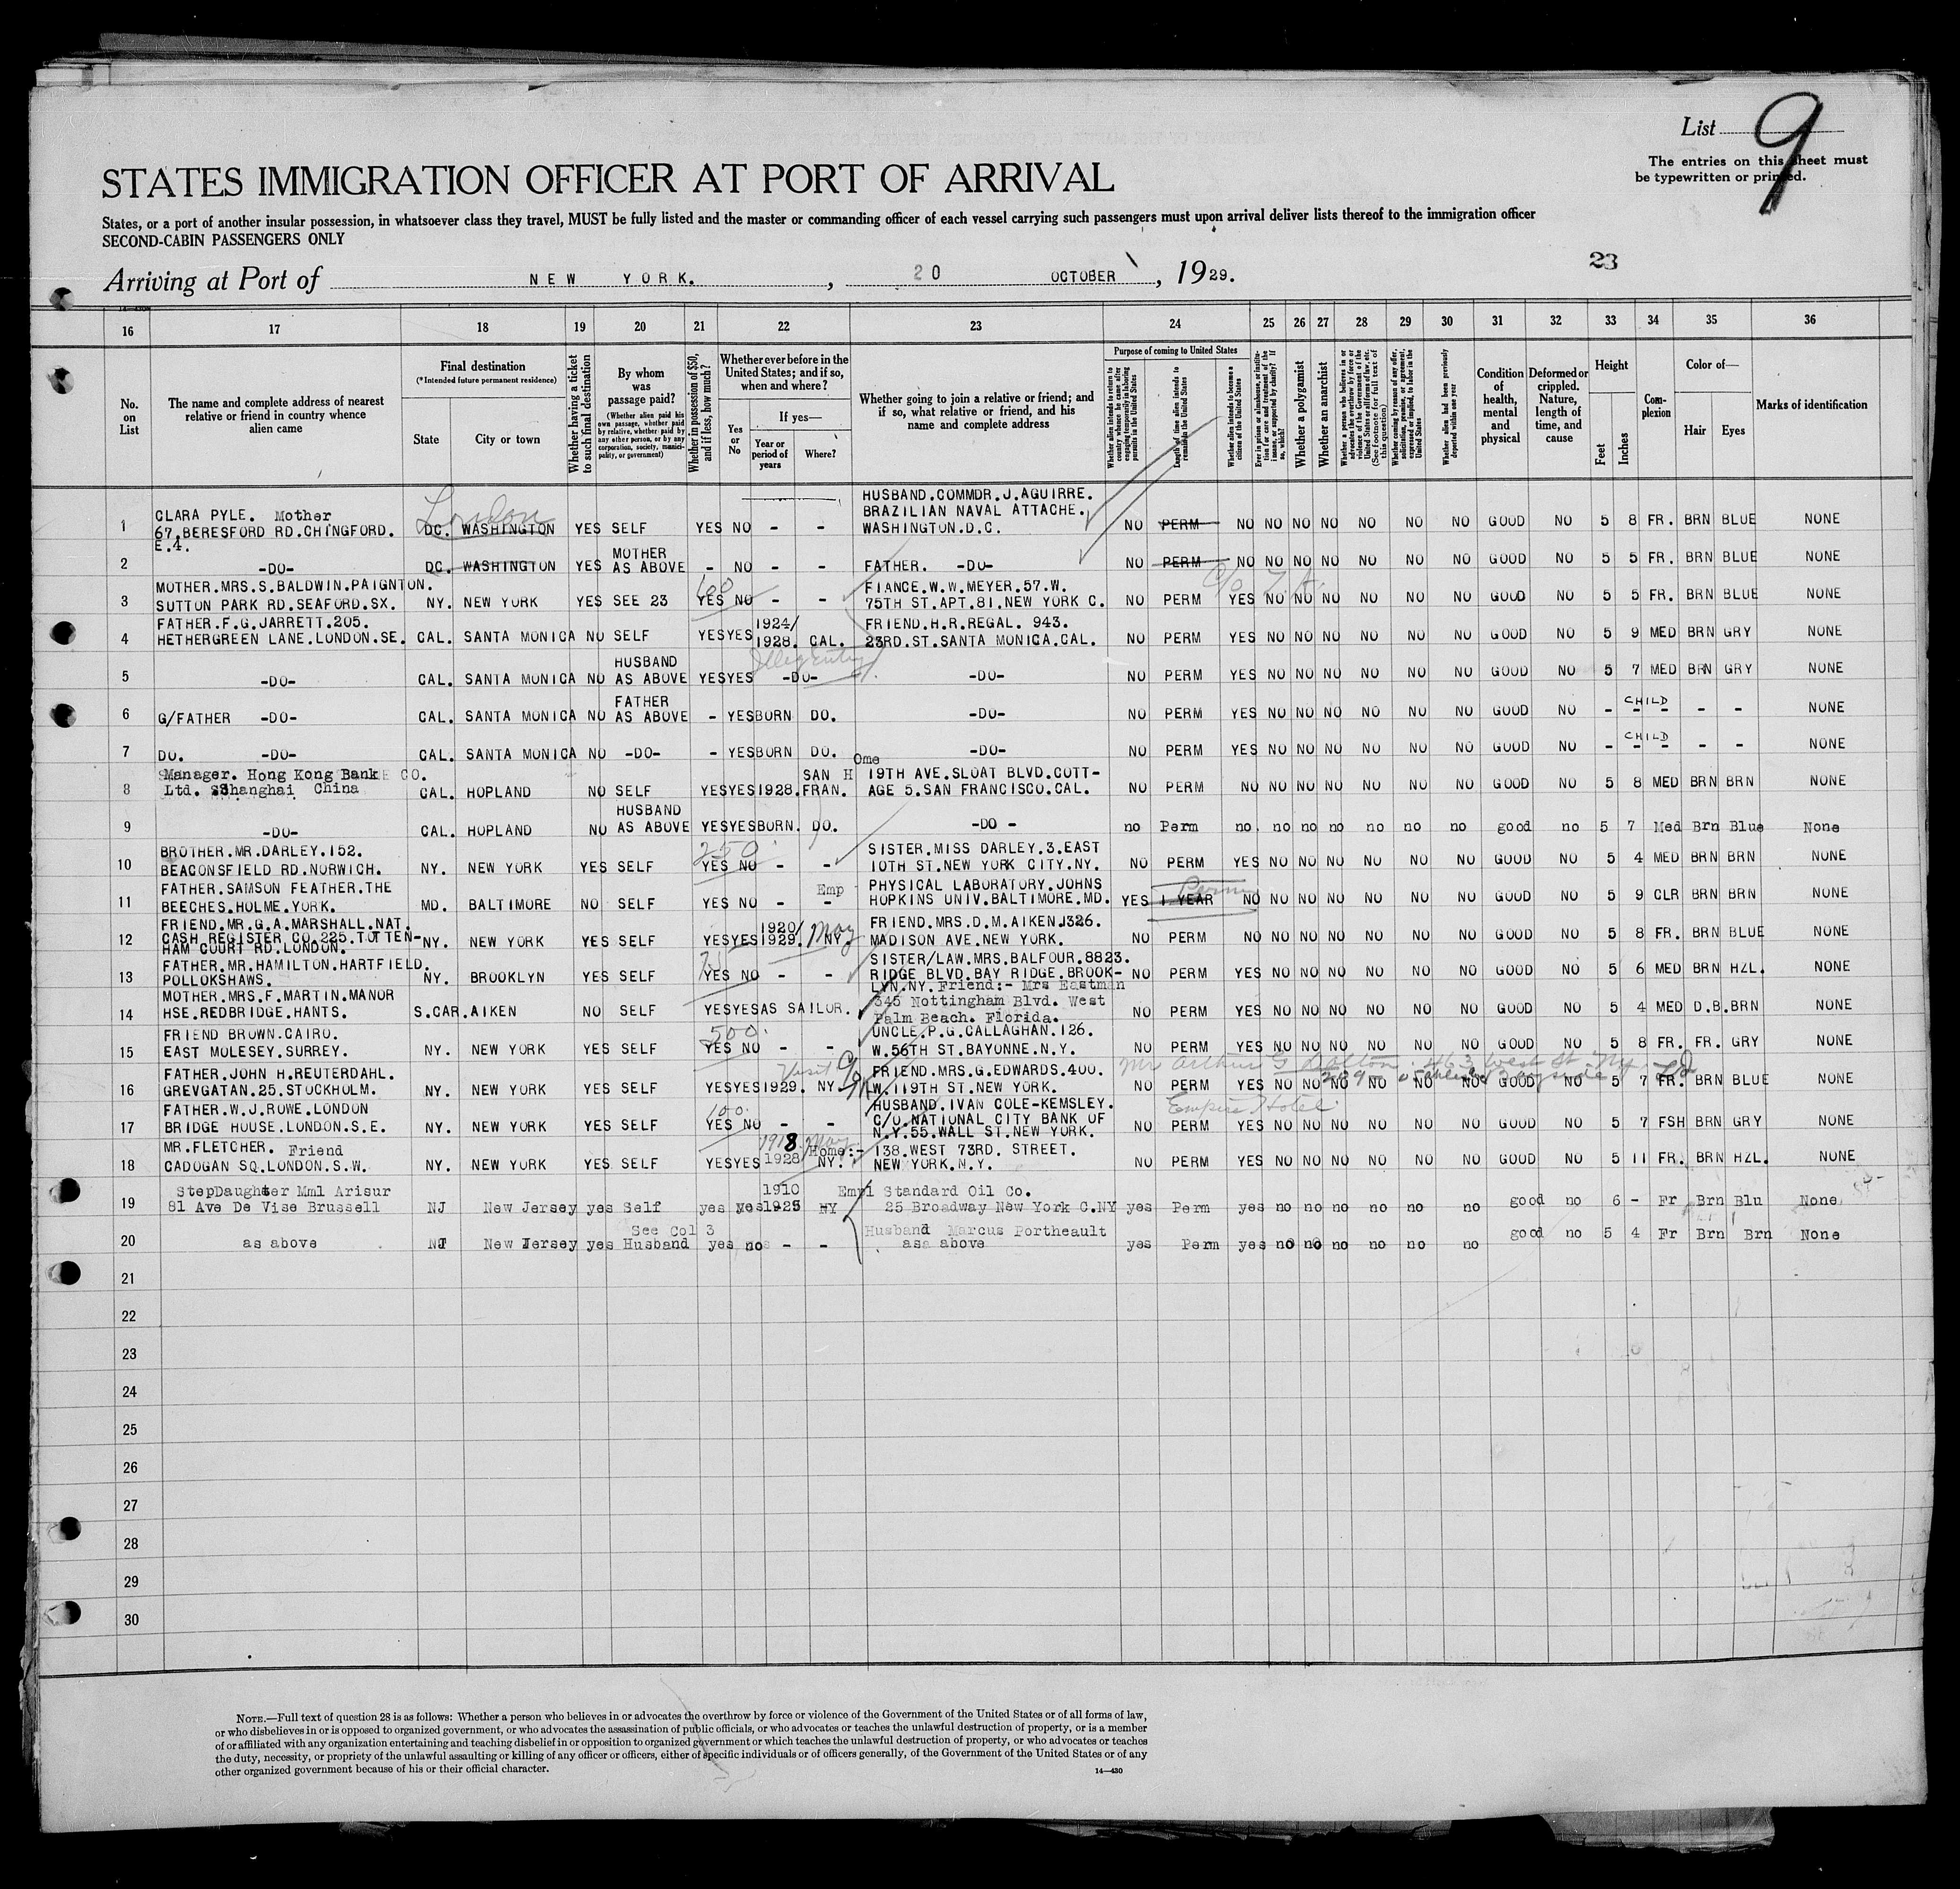 List 9
The entries on this sheet must
be typewritten or printed.
STATES IMMIGRATION OFFICER AT PORT OF ARRIVAL
States, or a port of another insular possession, in whatsoever class they travel, MUST be fully listed and the master or commanding officer of each vessel carrying such passengers must upon arrival deliver lists thereof to the immigration officer
SECOND-CABIN PASSENGERS ONLY
23
Arriving at Port of NEW YORK. , 20 OCTOBER , 1929.
16 17 18 19 20 21 22 23 24 25 26 27 28 29 30 31 32 33 34 35 36
No. on List
The name and complete address of nearest relative or friend in country whence alien came
Final destination
(*Intended future permanent residence)
State City or town
Whether having a ticket to such final destination
By whom was passage paid?
(Whether alien paid his own passage, whether paid by relative, whether paid by any other person, or by any corporation, society, municipality, or government)
Whether in possession of $50, and if less, how much?
Whether ever before in the United States; and if so, when and where?
Yes or No
If yes—
Year or period of years Where?
Whether going to join a relative or friend; and if so, what relative or friend, and his name and complete address
Purpose of coming to United States
Whether alien intends to return to country whence he came after engaging temporarily in laboring pursuits in the United States
Length of time alien intends to remain in the United States
Whether alien intends to become a citizen of the United States
Ever in prison or almshouse, or institution for care and treatment of the insane, or supported by charity? If so, which?
Whether a polygamist
Whether an anarchist
Whether a person who believes in or advocates the overthrow by force or violence of the Government of the United States or all forms of law, etc. (See footnote for full text of this question)
Whether coming by reason of any offer, solicitation, promise, or agreement, expressed or implied, to labor in the United States
Whether alien had been previously deported within one year
Condition of health, mental and physical
Deformed or crippled. Nature, length of time, and cause
Height
Feet Inches
Complexion
Color of—
Hair Eyes
Marks of identification
London HUSBAND.COMMDR.J.AGUIRRE.
CLARA PYLE. Mother BRAZILIAN NAVAL ATTACHE.
1 67.BERESFORD RD.CHINGFORD. DC. WASHINGTON YES SELF YES NO - - WASHINGTON.D.C. NO PERM NO NO NO NO NO NO NO GOOD NO 5 8 FR. BRN BLUE NONE
E.4. MOTHER
2 -DO- DC. WASHINGTON YES AS ABOVE - NO - - FATHER. -DO- NO PERM NO NO NO NO NO NO NO GOOD NO 5 5 FR. BRN BLUE NONE
MOTHER.MRS.S.BALDWIN.PAIGNTON. FIANCE.W.W.MEYER.57.W.
3 SUTTON PARK RD.SEAFORD.SX. NY. NEW YORK YES SEE 23 YES NO - - 75TH ST.APT.81.NEW YORK C. NO PERM YES NO NO NO NO NO NO GOOD NO 5 5 FR. BRN BLUE NONE
FATHER.F.G.JARRETT.205. 1924/ FRIEND.H.R.REGAL. 943.
4 HETHERGREEN LANE.LONDON.SE. CAL. SANTA MONICA NO SELF YES YES 1928. CAL. 23RD.ST.SANTA MONICA.CAL. NO PERM YES NO NO NO NO NO NO GOOD NO 5 9 MED BRN GRY NONE
HUSBAND Illeg Entry
5 -DO- CAL. SANTA MONICA NO AS ABOVE YES YES -DO- -DO- NO PERM YES NO NO NO NO NO NO GOOD NO 5 7 MED BRN GRY NONE
FATHER CHILD
6 G/FATHER -DO- CAL. SANTA MONICA NO AS ABOVE - YES BORN DO. -DO- NO PERM YES NO NO NO NO NO NO GOOD NO - - - - - NONE
CHILD
7 DO. -DO- CAL. SANTA MONICA NO -DO- - YES BORN DO. -DO- NO PERM YES NO NO NO NO NO NO GOOD NO - - - - - NONE
Manager. Hong Kong Bank CO. SAN H Ome 19TH AVE.SLOAT BLVD.COTT-
8 Ltd. Shanghai China CAL. HOPLAND NO SELF YES YES 1928. FRAN. AGE 5.SAN FRANCISCO.CAL. NO PERM NO NO NO NO NO NO NO GOOD NO 5 8 MED BRN BRN NONE
HUSBAND
9 -DO- CAL. HOPLAND NO AS ABOVE YES YES BORN. DO. -DO - no Perm no no no no no no no good no 5 7 Med Brn Blue None
BROTHER.MR.DARLEY.152. 250. SISTER.MISS DARLEY.3.EAST
10 BEACONSFIELD RD.NORWICH. NY. NEW YORK YES SELF YES NO - - 10TH ST.NEW YORK CITY.NY. NO PERM YES NO NO NO NO NO NO GOOD NO 5 4 MED BRN BRN NONE
FATHER.SAMSON FEATHER.THE Emp PHYSICAL LABORATORY.JOHNS Perm
11 BEECHES.HOLME.YORK. MD. BALTIMORE NO SELF YES NO - - HOPKINS UNIV.BALTIMORE.MD. YES 1 YEAR NO NO NO NO NO NO NO GOOD NO 5 9 CLR BRN BRN NONE
FRIEND.MR.G.A.MARSHALL.NAT. 1920/ May FRIEND.MRS.D.M.AIKEN.1326.
12 CASH REGISTER CO.225.TOTTEN- NY. NEW YORK YES SELF YES YES 1929. NY. MADISON AVE.NEW YORK. NO PERM NO NO NO NO NO NO NO GOOD NO 5 8 FR. BRN BLUE NONE
HAM COURT RD.LONDON.
FATHER.MR.HAMILTON.HARTFIELD. SISTER/LAW.MRS.BALFOUR.8823.
13 POLLOKSHAWS. NY. BROOKLYN YES SELF YES NO - - RIDGE BLVD.BAY RIDGE.BROOK- NO PERM YES NO NO NO NO NO NO GOOD NO 5 6 MED BRN HZL. NONE
LYN.NY. Friend:- Mrs Eastman
MOTHER.MRS.F.MARTIN.MANOR 345 Nottingham Blvd. West
14 HSE.REDBRIDGE.HANTS. S.CAR. AIKEN NO SELF YES YES AS SAILOR. Palm Beach. Florida. NO PERM YES NO NO NO NO NO NO GOOD NO 5 4 MED D.B. BRN NONE
FRIEND BROWN.CAIRO. 500. UNCLE.P.G.CALLAGHAN.126.
15 EAST MOLESEY.SURREY. NY. NEW YORK YES SELF YES NO - - W.56TH ST.BAYONNE.N.Y. NO PERM YES NO NO NO NO NO NO GOOD NO 5 8 FR. FR. GRY NONE
FATHER.JOHN H.REUTERDAHL. Visit FRIEND.MRS.G.EDWARDS.400. Mr Arthur G Dalton 463 West St NY
16 GREVGATAN.25.STOCKHOLM. NY. NEW YORK YES SELF YES YES 1929. NY. W.119TH ST.NEW YORK. NO PERM YES NO NO NO NO NO NO GOOD NO 5 7 FR. BRN BLUE NONE
FATHER.W.J.ROWE.LONDON 100. HUSBAND.IVAN COLE-KEMSLEY. Empire Hotel
17 BRIDGE HOUSE.LONDON.S.E. NY. NEW YORK YES SELF YES NO - - C/O.NATIONAL CITY BANK OF NO PERM YES NO NO NO NO NO NO GOOD NO 5 7 FSH BRN GRY NONE
N.Y.55.WALL ST.NEW YORK.
MR.FLETCHER. Friend 1918 May Home:- 138.WEST 73RD. STREET.
18 CADOGAN SQ.LONDON.S.W. NY. NEW YORK YES SELF YES YES 1928 NY. NEW YORK.N.Y. NO PERM YES NO NO NO NO NO NO GOOD NO 5 11 FR. BRN HZL. NONE
StepDaughter Mml Arisur 1910 Empl Standard Oil Co.
19 81 Ave De Vise Brussell NJ New Jersey yes Self yes yes 1925 NY 25 Broadway New York C.NY yes Perm yes no no no no no no good no 6 - Fr Brn Blu None
See Col 3 Husband Marcus Portheault
20 as above NJ New Jersey yes Husband yes no - - as above yes Perm yes no no no no no no good no 5 4 Fr Brn Brn None
21
22
23
24
25
26
27
28
29
30
NOTE.—Full text of question 28 is as follows: Whether a person who believes in or advocates the overthrow by force or violence of the Government of the United States or of all forms of law,
or who disbelieves in or is opposed to organized government, or who advocates the assassination of public officials, or who advocates or teaches the unlawful destruction of property, or is a member
of or affiliated with any organization entertaining and teaching disbelief in or opposition to organized government or which teaches the unlawful destruction of property, or who advocates or teaches
the duty, necessity, or propriety of the unlawful assaulting or killing of any officer or officers, either of specific individuals or of officers generally, of the Government of the United States or of any
other organized government because of his or their official character.
14—430